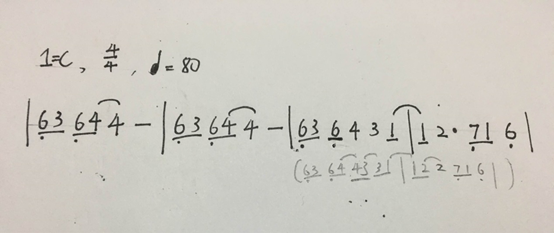 1=C, 4/4, ♩=80
|63 64 4 – |63 64 4 – |63 6 4 3 1 | 1 2 · 71 6 |
(63 64 43 31 | 12 2 71 6 | )